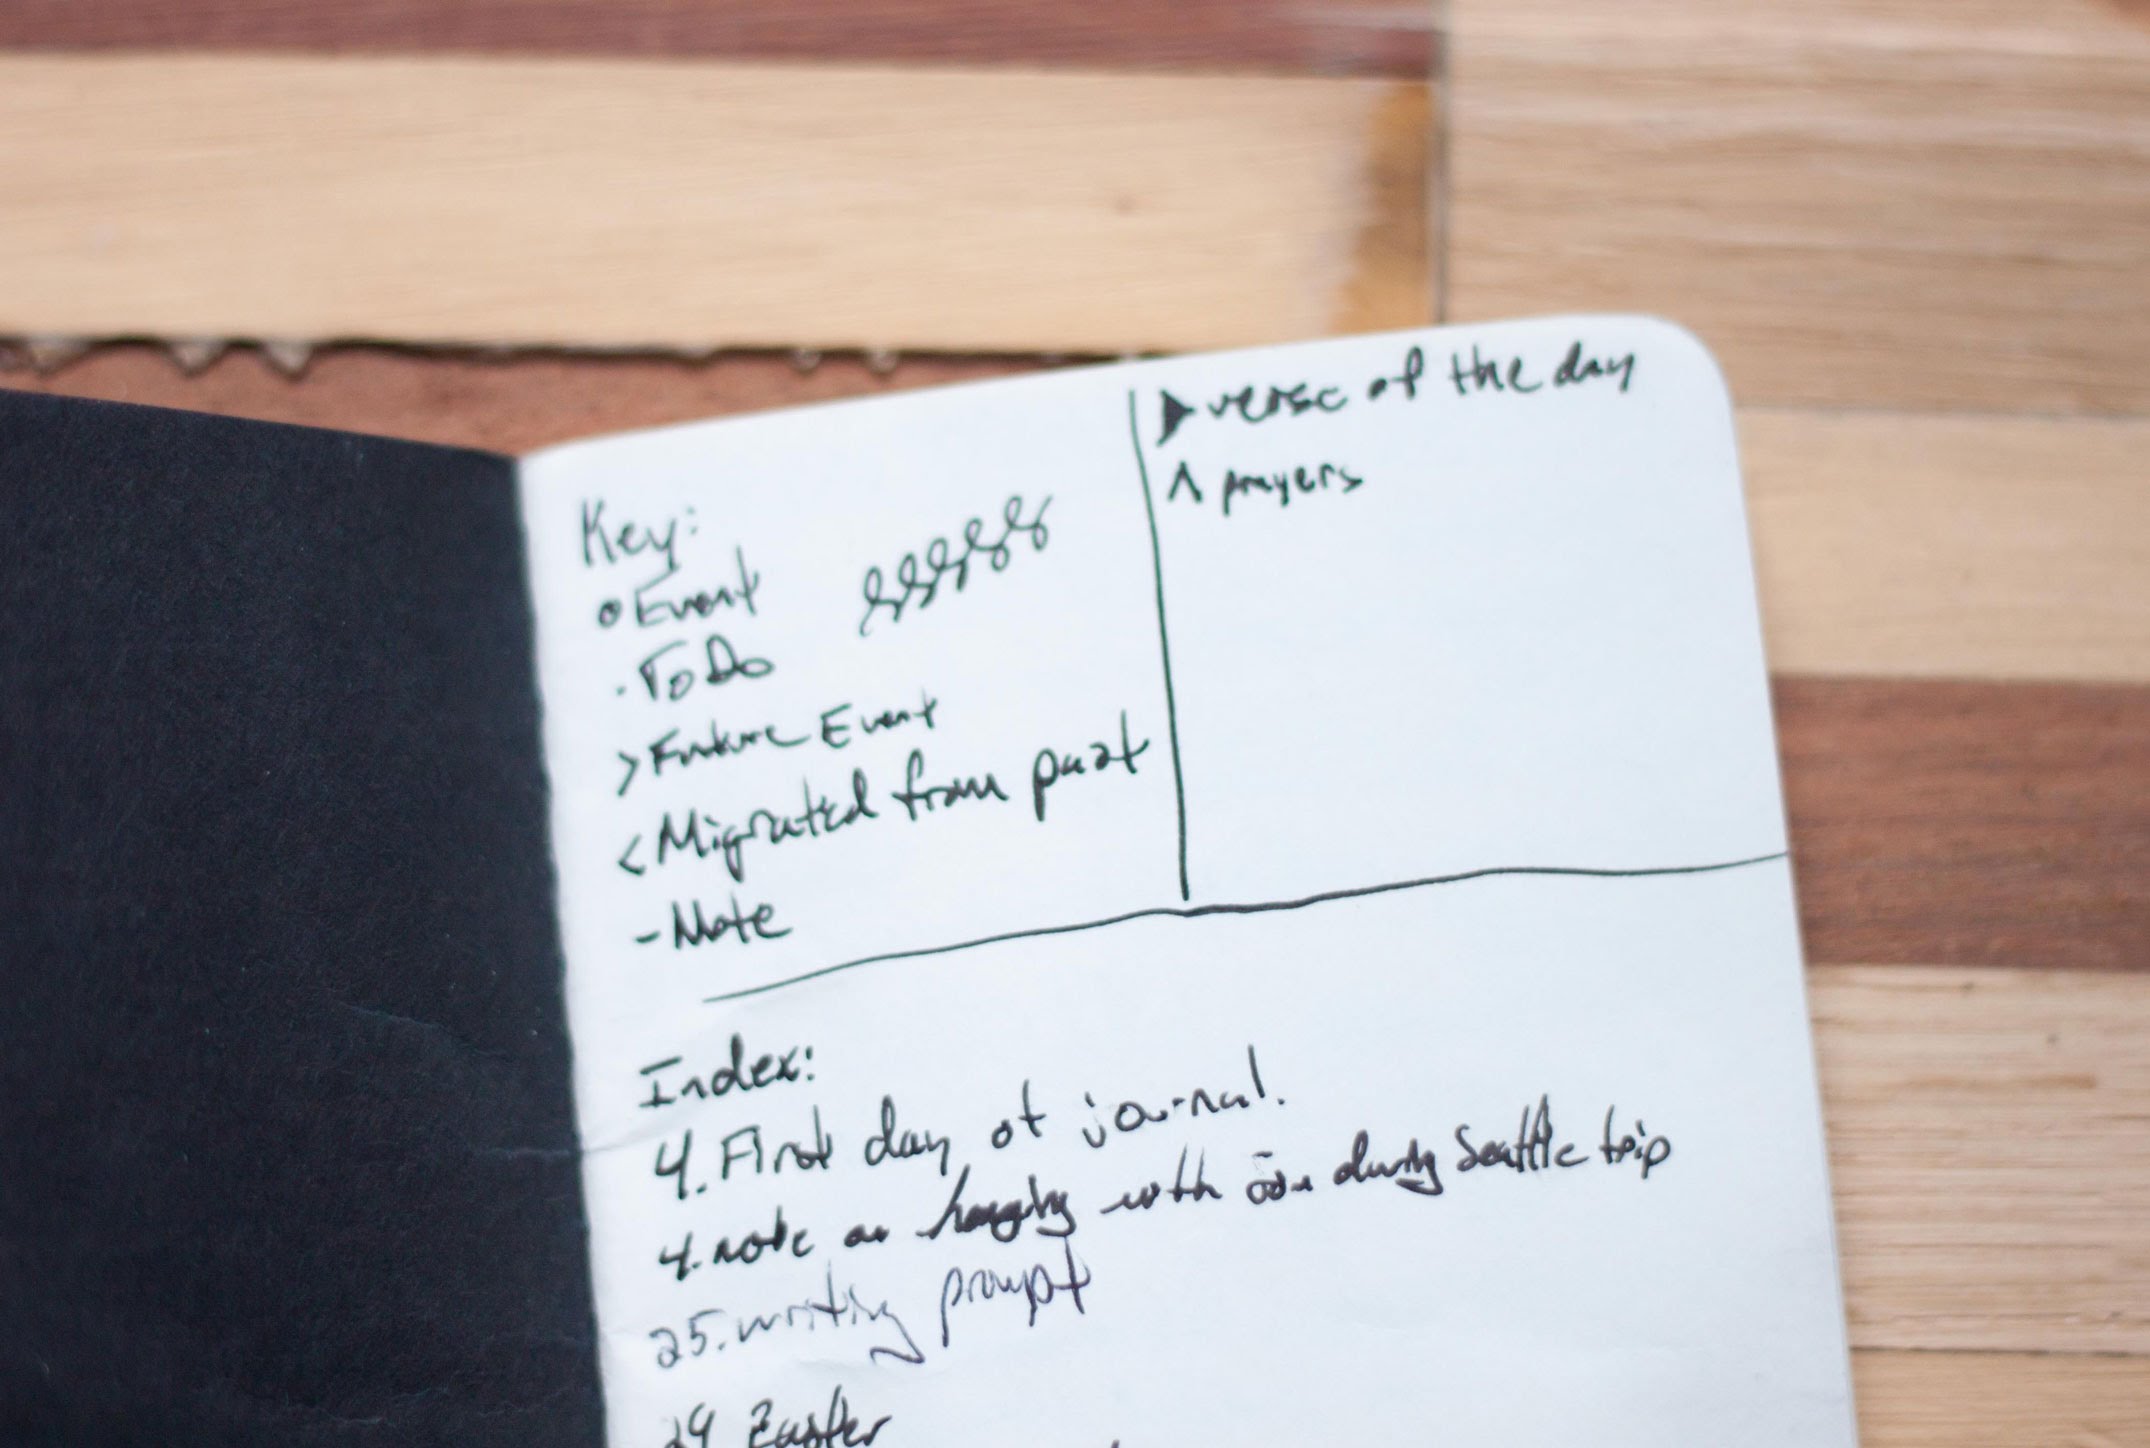 Key:
• Event
· To Do
> Future Event
< Migrated from past
- Note
▶ verse of the day
^ prayers
Index:
4. First day of journal.
4. note on hanging with during Seattle trip
25. writing prompt
29 Easter